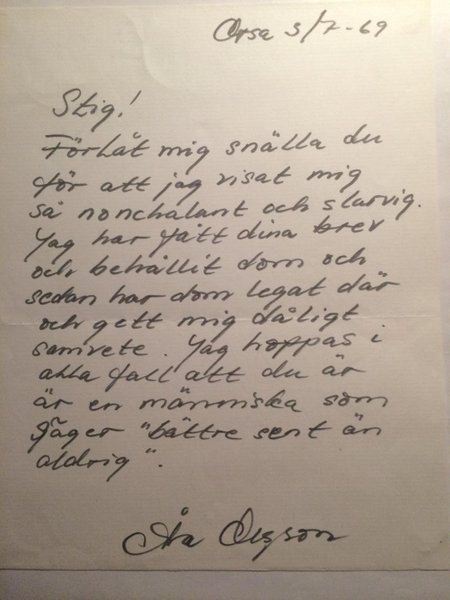 Orsa 3/7-69
Stig!
Förlåt mig snälla du
för att jag visat mig
så nonchalant och slarvig.
Jag har fått dina brev
och behållit dom och
sedan har dom legat där
och gett mig dåligt
samvete. Jag hoppas i
alla fall att du är
är en människa som
säger "bättre sent än
aldrig".